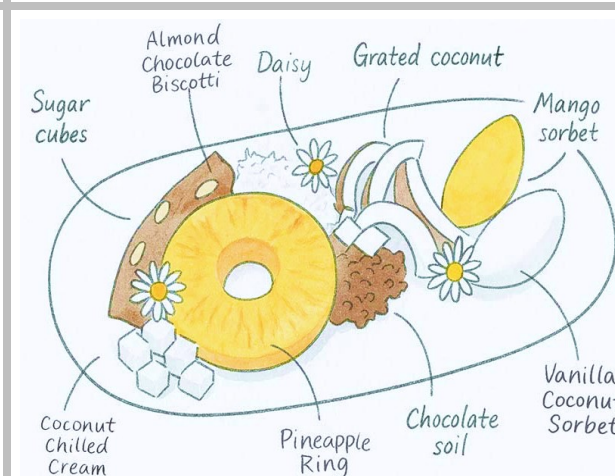 Almond
Chocolate
Biscotti
Daisy
Grated coconut
Sugar
cubes
Mango
sorbet
Coconut
Chilled
Cream
Pineapple
Ring
Chocolate
soil
Vanilla
Coconu
Sorbet